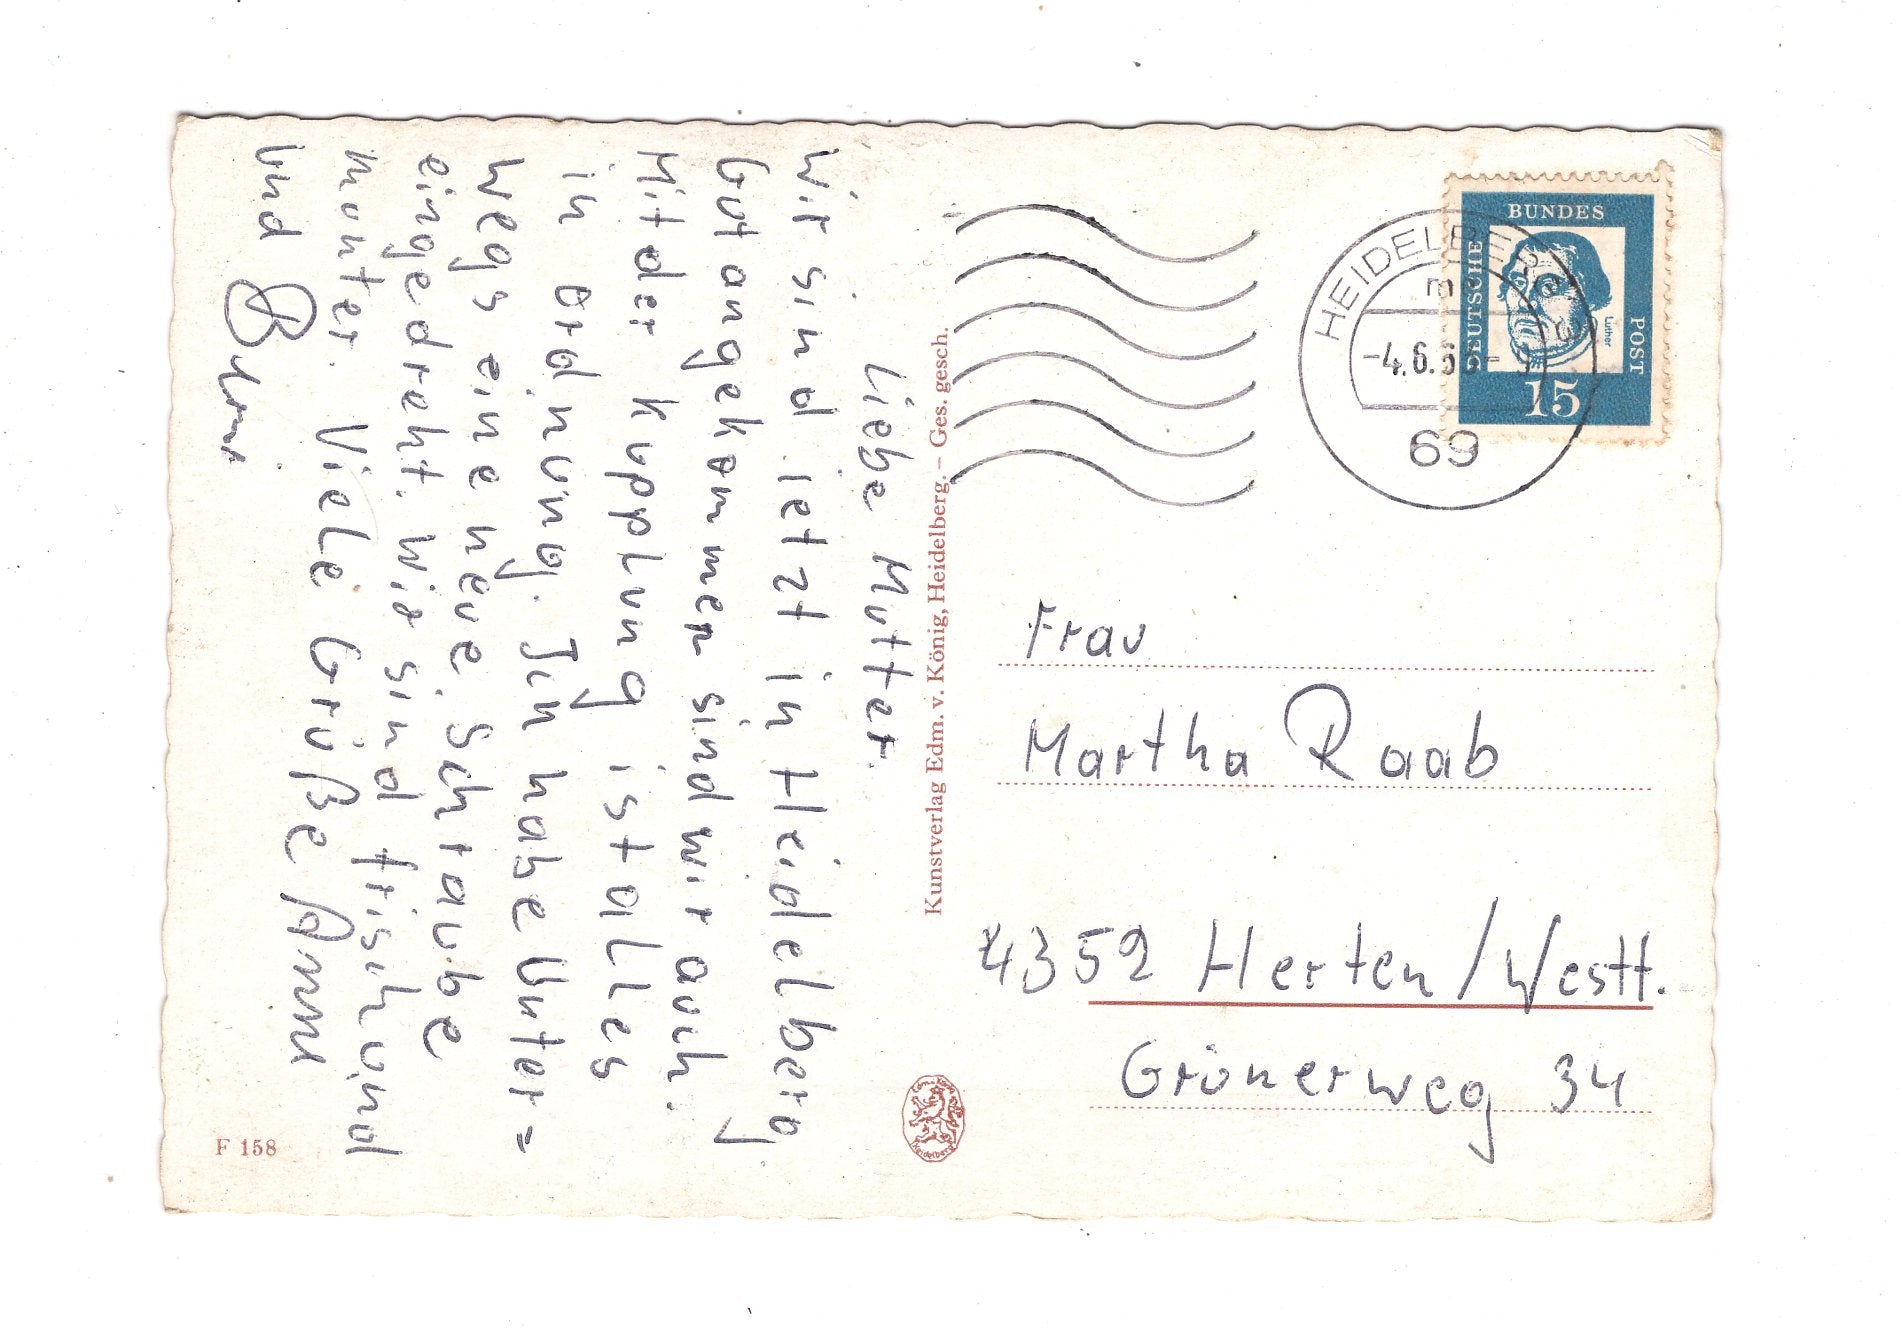 Liebe Mutter.
Wir sind jetzt in Heidelberg
Gut angekommen sind wir auch.
Mit der Kupplung ist alles
in Ordnung. Ich habe Unter=
wegs eine neue Schraube
eingedreht. Wir sind frisch und
munter. Viele Grüße
und
Kunstverlag Edm. v. König, Heidelberg. – Ges. gesch.
F 158
HEIDELBERG
-4.6.6
69
DEUTSCHE
BUNDES
POST
Luther
15
Frau
Martha Raab
4352 Herten/Westf.
Grünerweg 34
Edm. v. König
Heidelberg